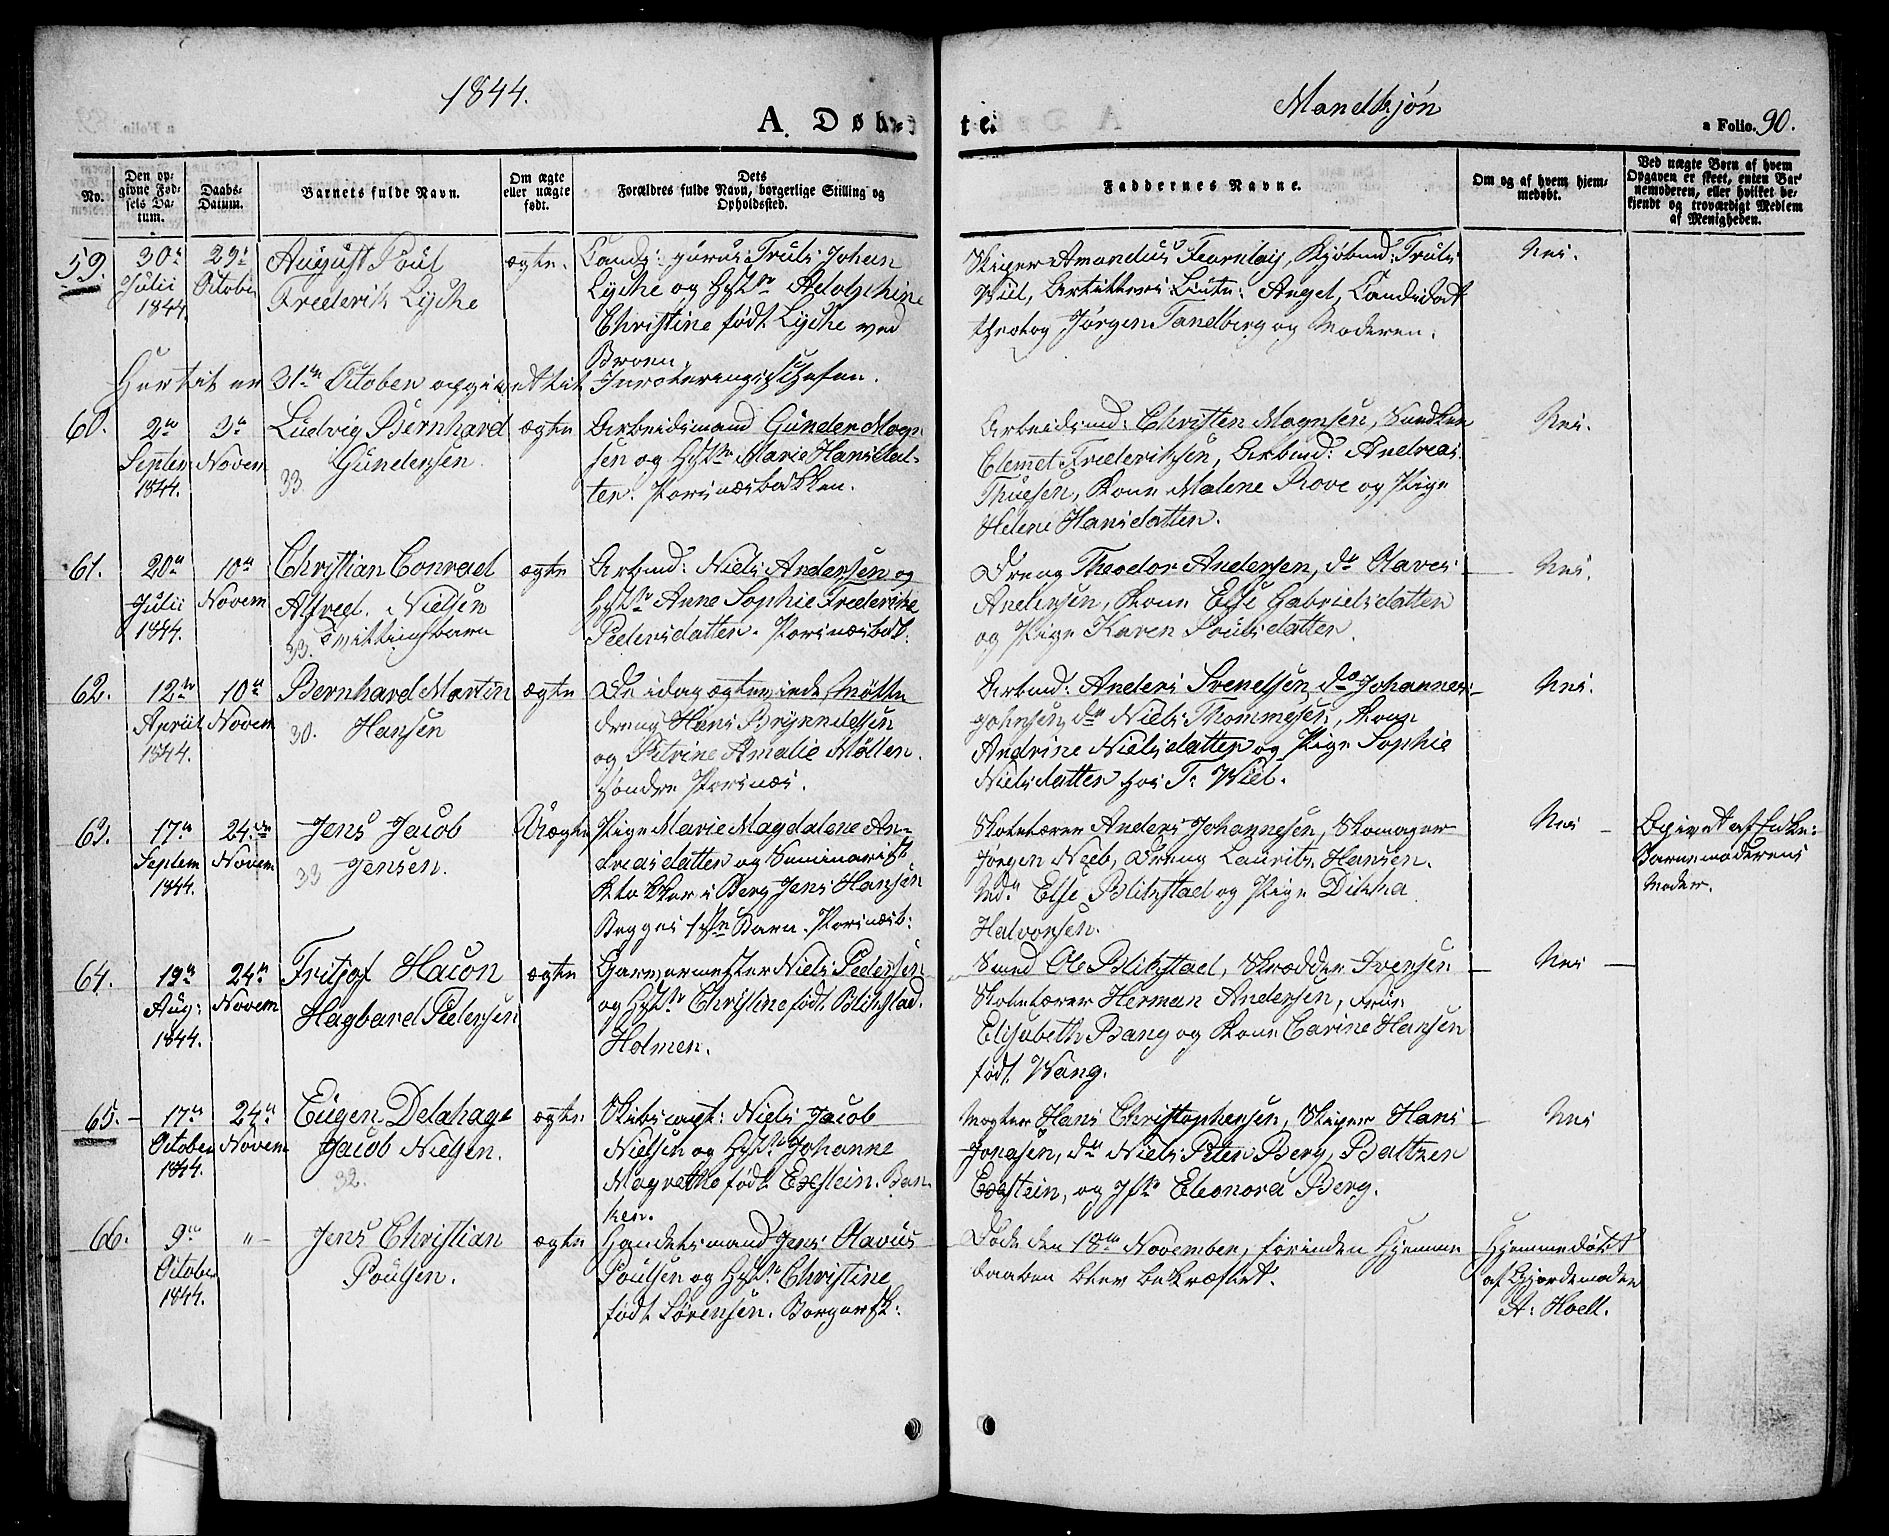 1844.
A. Døb-
te.
Mandkjøn
a Folio. 90.
No.
Den op-
givne Fød-
sels Da-
tum.
Daabs-
Datum.
Barnets fulde Navn.
Om ægte
eller uægte
født.
Dets
Forældres fulde Navn, borgerlige Stilling og
Opholdssted.
Faddernes Navne.
Om og af hvem hjem-
medøbt.
Ved uægte Børn af hvem
Opgaven er skeet, enten Bar-
nemoderen, eller hvilket be-
kjendt og troværdigt Medlem
af Menigheden.
59.
30te
Julii
1844
29de
October
August Poul
Frederik Lyche
ægte.
Cand: jurus Truls Johan
Lyche og Hst. Adolphine
Christine født Lyche ved
Broen.
Skiper Amandus Fearnley, Kjøbmd: Truls
Wiel, Artilleri Lieutn: Angel, Candidat
theolog Jørgen Tandberg og Moderen.
Nei.
Hertil er 31te October opgivet til Inrolleringschefen.
60.
2den
Septem
1844.
3de
Novem
Ludvig Bernhard
Gundersen.
33
ægte
Arbeidsmand Gunder Mogn-
sen og Hst. Marie Hansdat-
ter. Porsnæsbakken.
Arbeidsmd: Christen Magnsen, Snedker
Clemet Frederiksen, Arbmd: Andreas
Thuesen, Kone Malene Rove og Pige
Helene Hansdatter.
Nei.
61.
20de
Julii
1844.
10de
Novem
Christian Conrad
Alfred. Nielsen
33. Tvillingbarn
ægte
Arbmd: Niels Andersen og
Hst. Anne Sophie Frederikke
Pedersdatter. Porsnæsbak:
Dreng Theodor Andersen, do Olaves
Andersen, Kone Else Gabrielsdatter
og Pige Karen Poulsdatter.
Nei.
62.
12te
April
1844.
10de
Novem
Bernhard Martin
30. Hansen
ægte
De idag ægteviede Mølle-
dreng Hans Brynnildsen
og Petrine Amalie Møller.
søndre Porsnæs.
Arbmd: Anders Svendsen, do Johannes
Johnsen, do Niels Thommesen, Kone
Andrine Nielsdatter og Pige Sophie
Nielsdatter hos T: Wiel.
Nei.
63.
17de
Septem
1844.
24de
Novem
Jens Jacob
33 Jensen.
Uægte
Pige Marie Magdalene An-
dreasdatter og Seminarist
Klokker i Berg Jens Hansen
Begges 1ste Barn. Porsnæsb:
Skolelærer Anders Johannesen, Skomager
Jørgen Neeb, Dreng Laurits Hansen.
Md. Else Blikstad og Pige Dikka
Halvorsen.
Nei
Opgivet af Enke:
Barnemoderens
Moder.
64.
19de
Aug:
1844.
24de
Novem
Fritjof Hacon
Hagbard Pedersen
ægte
Garvermester Niels Pedersen
og Hst. Christine født Blikstad.
Holmen.
Smed Ole Blikstad, Skrædder Iversen
Skolelærer Herman Andersen, Frue
Elisabeth Bang og Kone Carine Hansen
født Wang.
Nei
65.
17de
October
1844.
24de
Novem
Eugen Delahage
Jacob Nielsen.
32.
ægte
Skibscapt: Niels Jacob
Nielsen og Hst. Johanne
Magrethe født Exstein. Ban-
ken.
Mægler Hans Christophersen, Skiper Hans
Jonasen, do Niels Peter Berg, Baltzer
Exstein, og Jfr. Eleonora Berg.
Nei
66.
9de
October
1844.
"
Jens Christian
Poulsen.
ægte
Handelsmand Jens Olavus
Poulsen og Hst. Christine
født Sørensen. Borgersk:
Døde den 18de November, forinden Hjemme
daaben blev bekræftet.
Hjemmedøbt
af Gjordemoder
A: Hoell.